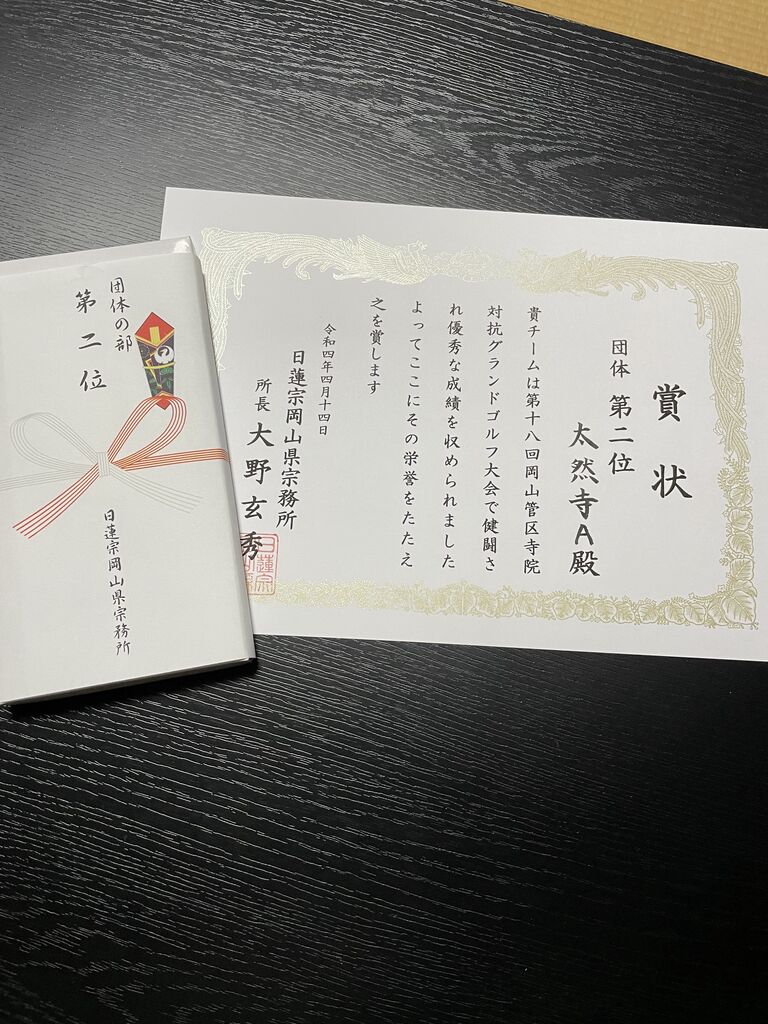 賞状
団体 第二位
太然寺A殿
貴チームは第十八回岡山管区寺院
対抗グランドゴルフ大会で健闘さ
れ優秀な成績を収められました
よってここにその栄誉をたたえ
之を賞します
令和四年四月十四日
日蓮宗岡山県宗務所
所長 大野玄秀
団体の部
第二位
日蓮宗岡山県宗務所